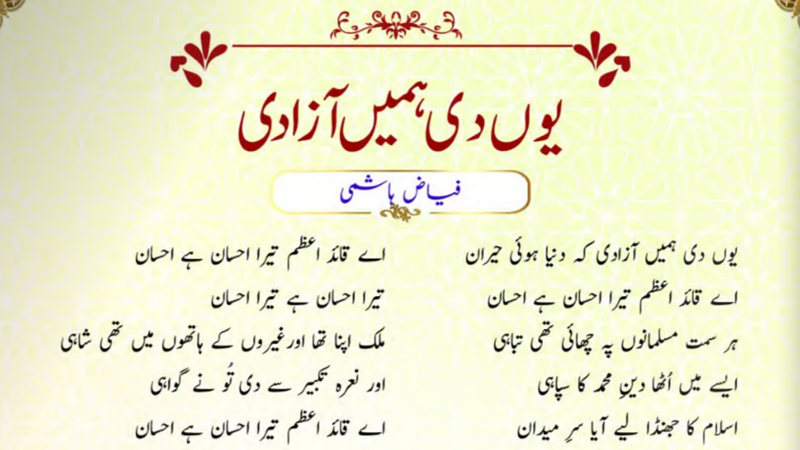 یوں دی ہمیں آزادی
فیاض ہاشمی
یوں دی ہمیں آزادی کہ دنیا ہوئی حیران
اے قائد اعظم تیرا احسان ہے احسان
اے قائد اعظم تیرا احسان ہے احسان
تیرا احسان ہے تیرا احسان
ہر سمت مسلمانوں پہ چھائی تھی تباہی
ملک اپنا تھا اورغیروں کے ہاتھوں میں تھی شاہی
ایسے میں اُٹھا دینِ محمد کا سپاہی
اور نعرہ تکبیر سے دی تُو نے گواہی
اسلام کا جھنڈا لیے آیا سرِ میدان
اے قائد اعظم تیرا احسان ہے احسان